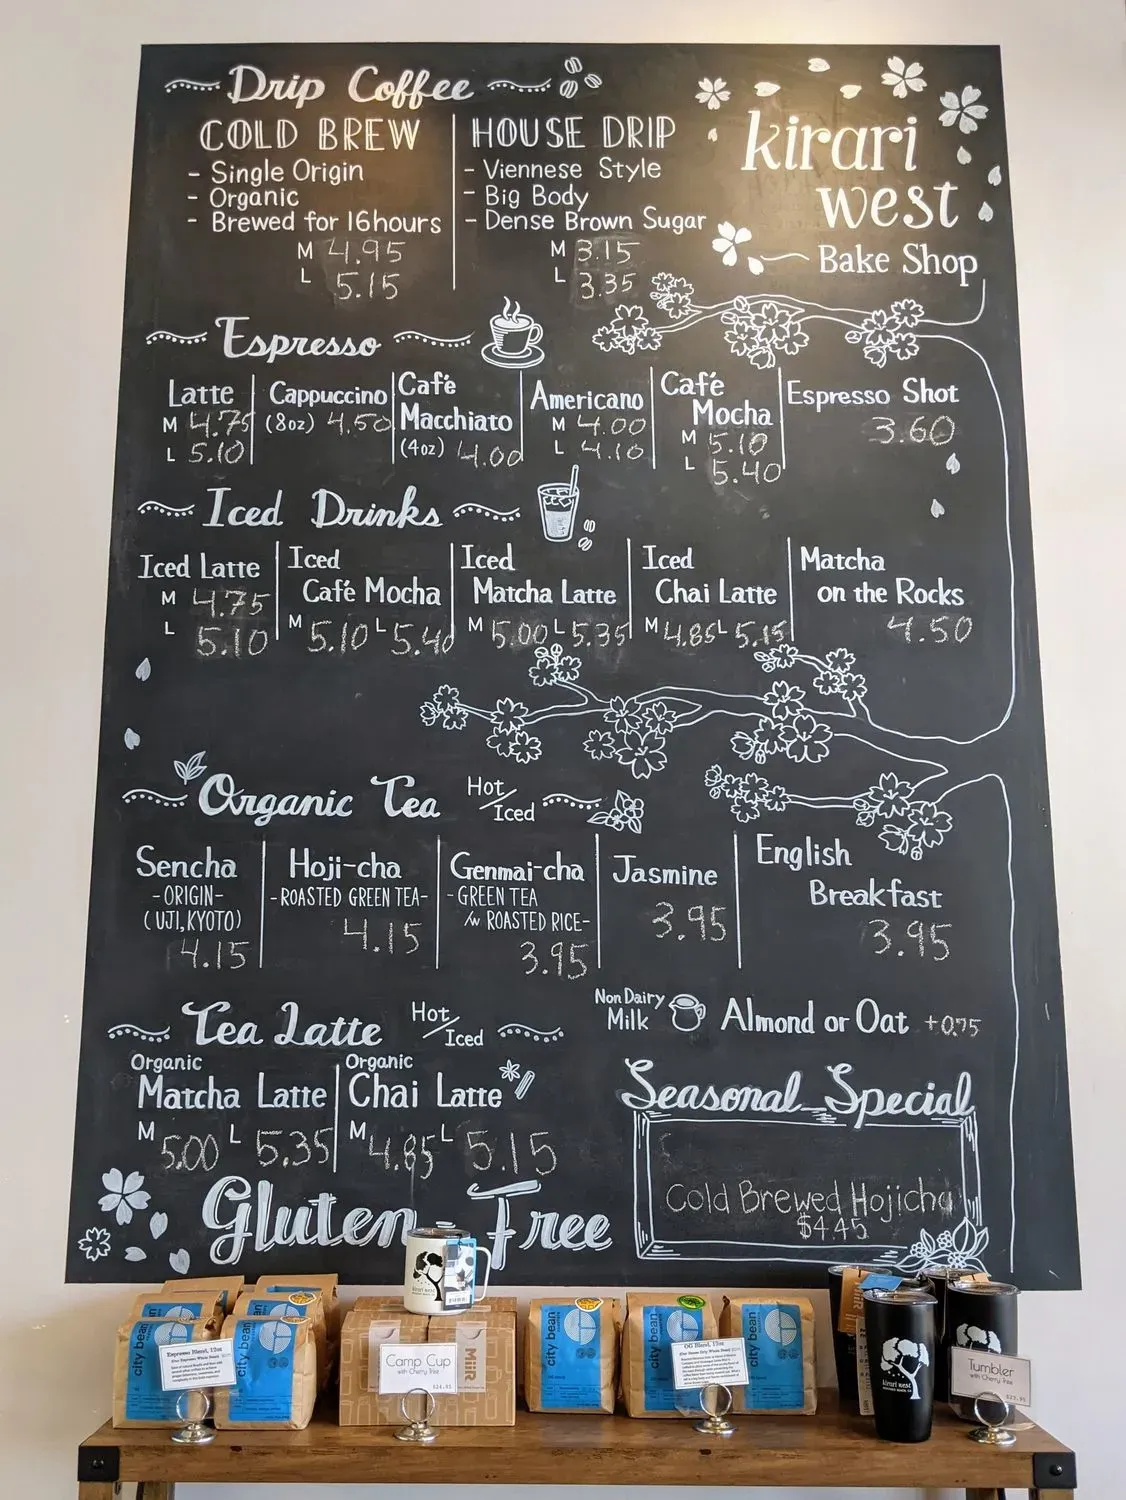 Drip Coffee
COLD BREW
- Single Origin
- Organic
- Brewed for 16hours
M 4.95
L 5.15
HOUSE DRIP
- Viennese Style
- Big Body
- Dense Brown Sugar
M 3.15
L 3.35
kirari
west
Bake Shop
Espresso
Latte
M 4.75
L 5.10
Cappuccino
(8oz) 4.50
Café
Macchiato
(4oz) 4.00
Americano
M 4.00
L 4.10
Café
Mocha
M 5.10
L 5.40
Espresso Shot
3.60
Iced Drinks
Iced Latte
M 4.75
L 5.10
Iced
Café Mocha
M 5.10 L 5.40
Iced
Matcha Latte
M 5.00 L 5.35
Iced
Chai Latte
M 4.85 L 5.15
Matcha
on the Rocks
4.50
Organic Tea
Hot/Iced
Sencha
-ORIGIN-
(UJI,KYOTO)
4.15
Hoji-cha
-ROASTED GREEN TEA-
4.15
Genmai-cha
-GREEN TEA
/w ROASTED RICE-
3.95
Jasmine
3.95
English
Breakfast
3.95
Tea Latte
Hot/Iced
Non Dairy
Milk
Almond or Oat +0.75
Organic
Matcha Latte
M 5.00 L 5.35
Organic
Chai Latte
M 4.85 L 5.15
Seasonal Special
Cold Brewed Hojicha
$4.45
Gluten-Free
kirari west
city bean
city bean
Espresso Blend, 12oz
Camp Cup
with Cherry Tree
$24.95
MiiR
city bean
city bean
OG Blend, 12oz
city bean
kirari west
Tumbler
with Cherry Tree
$23.95